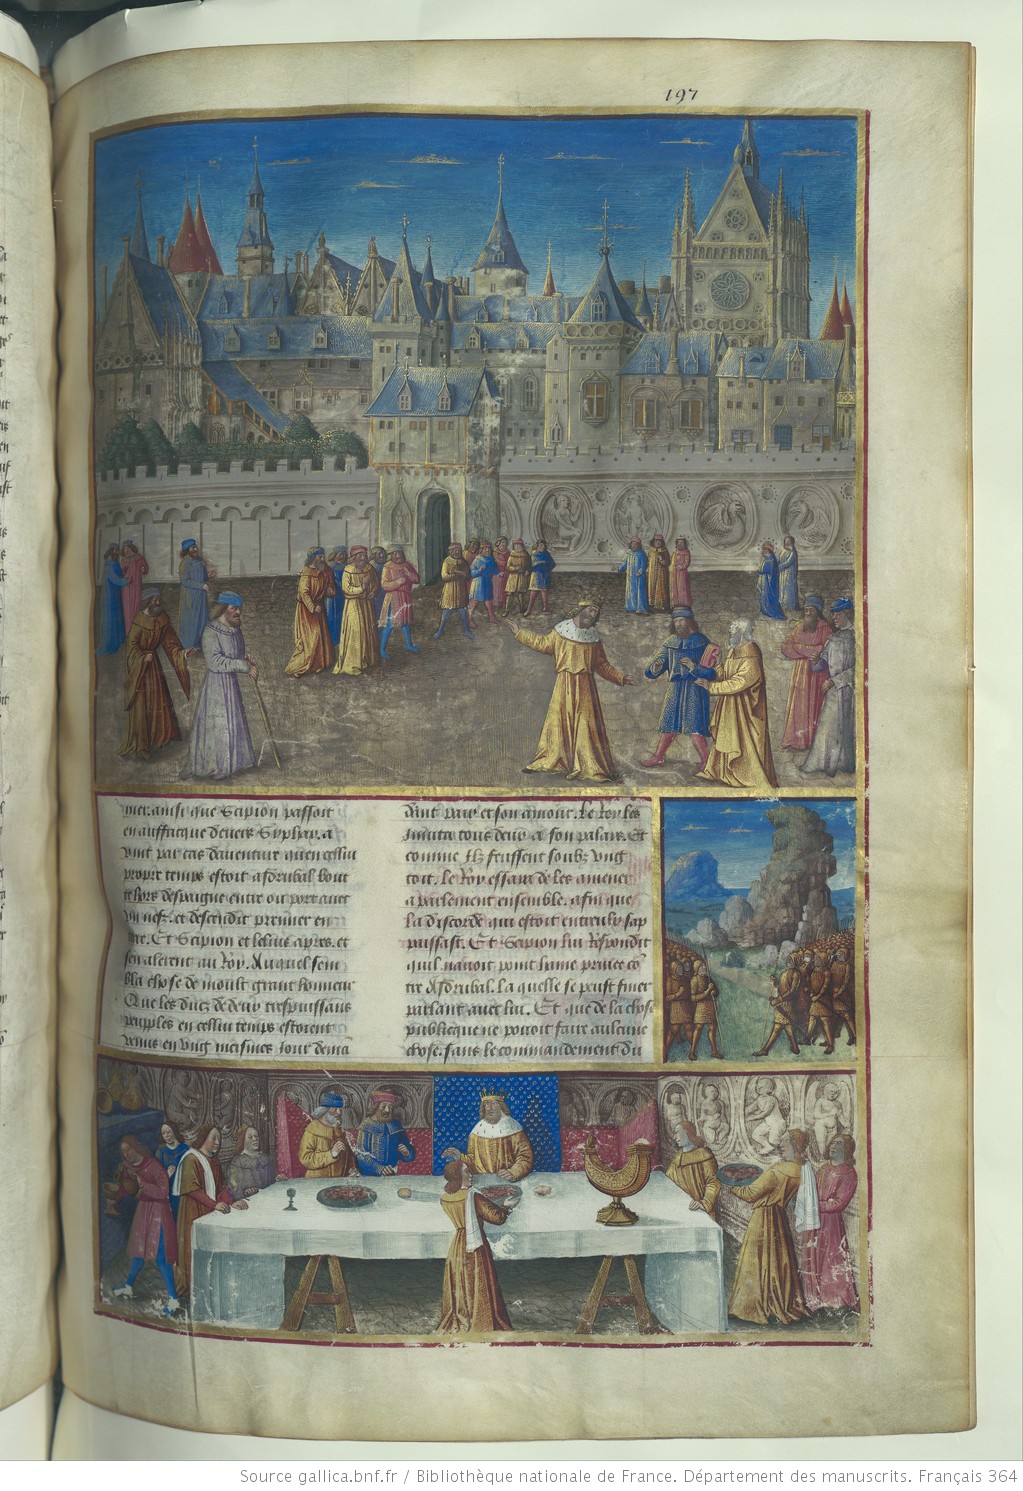 197
mer. ainsi que Scipion passoit
en auffricque devers Syphax. a
vint par cas daventure quen cellui
propre temps estoit asdrubal boute
hors despaigne entre ou port avec
vii nefz. et descendit premier en
terre. Et Scipion et lelius apres. et
sen alerent au Roy. Auquel sem
bla chose de moult grant honneur
Que les ducz de deux trespuissans
peuples en cellui temps estoient
venus en ung mesmes jour dema
dant paix et son amour. Le Roy les
invita tous deux a son palais. Et
comme ilz feussent soubz ung
toit. le Roy essaia de les amener
a parlement ensemble. afin que
la discorde qui estoit entreulx sap
paisast. Et Scipion lui respondit
quil navoit point haine privee co
tre Asdrubal. la quelle se peust finer
parlant avec lui. Et que de la chose
publicque ne povoit faire aulcune
chose. sans le commandement du
Source gallica.bnf.fr / Bibliothèque nationale de France. Département des manuscrits. Français 364